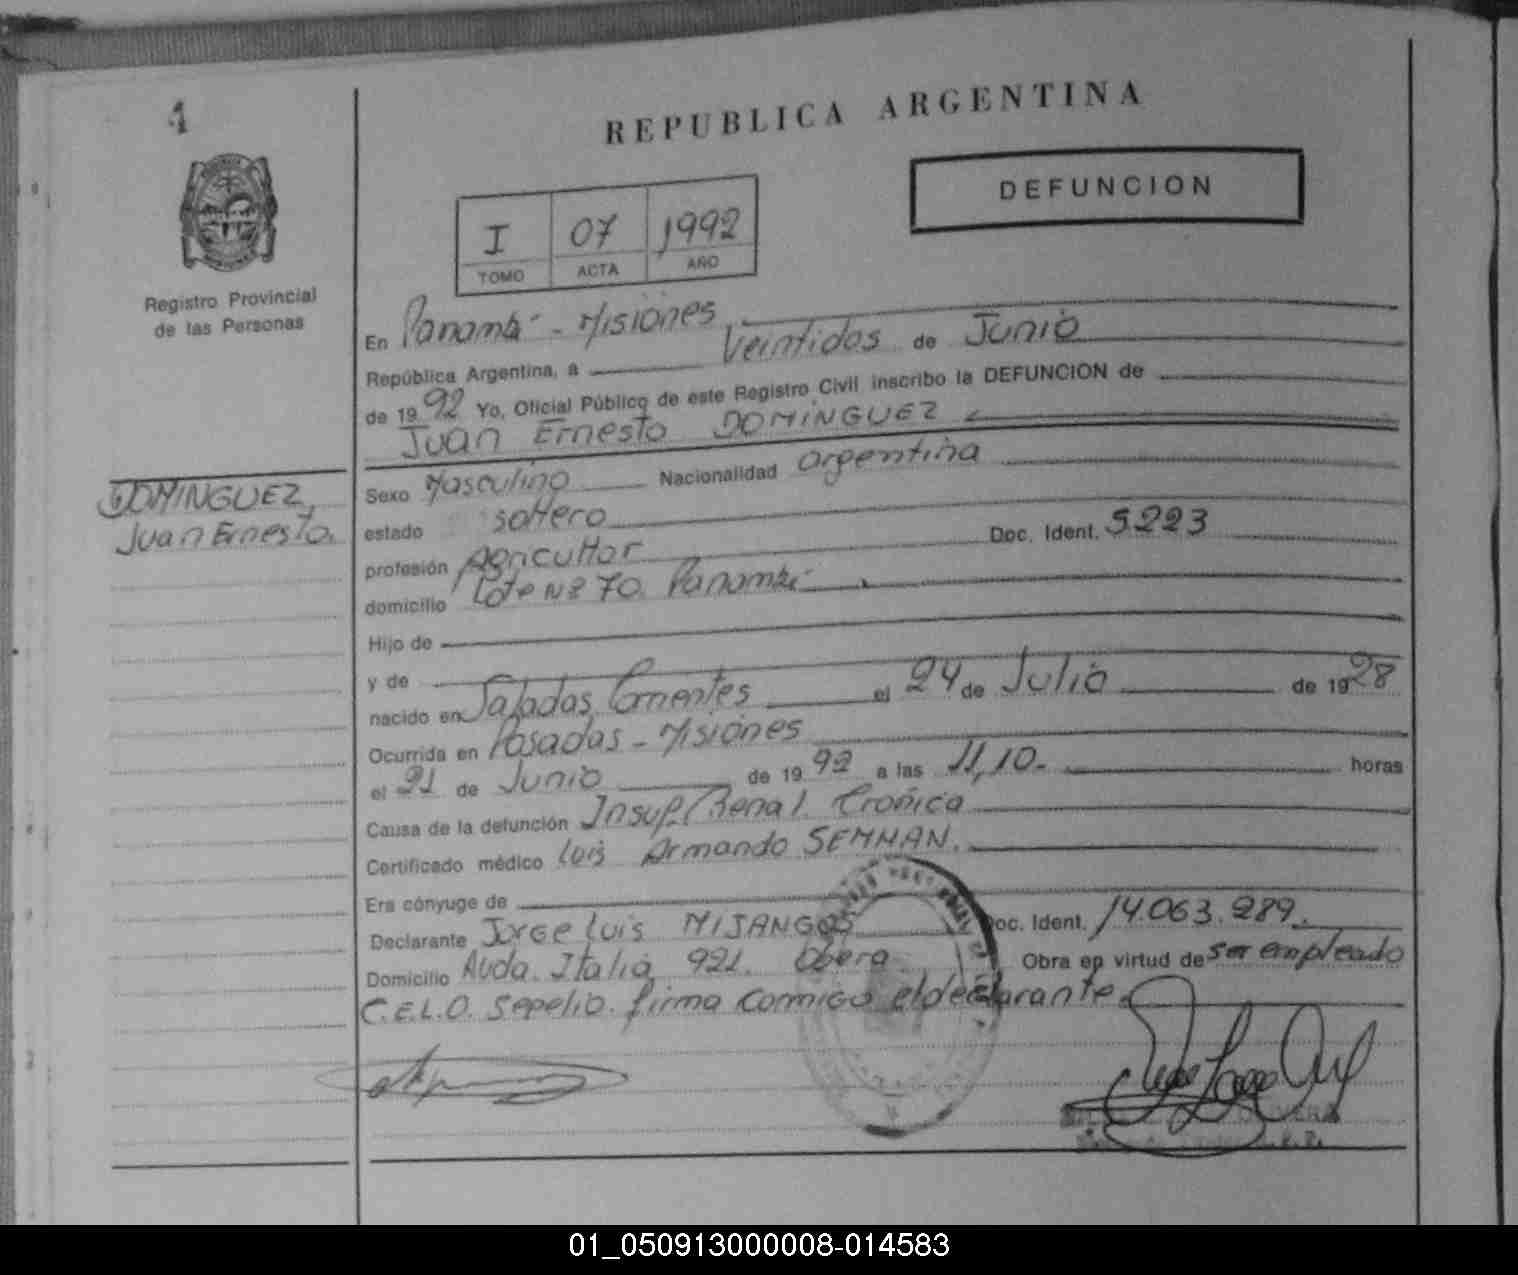 1
REPUBLICA ARGENTINA
DEFUNCION
I 07 1992
TOMO ACTA AÑO
Registro Provincial
de las Personas
En Panambí - Misiones
República Argentina, a Veintidos de Junio
de 1992 Yo, Oficial Público de este Registro Civil inscribo la DEFUNCION de
Juan Ernesto DOMINGUEZ
DOMINGUEZ
Juan Ernesto.
Sexo Masculino Nacionalidad Argentina
estado soltero
profesión Agricultor Doc. Ident. 5223
domicilio Lote Nº 70. Panambí
Hijo de
y de
nacido en Saladas Corrientes el 24 de Julio de 1928
Ocurrida en Posadas - Misiones
el 21 de Junio de 1992 a las 11,10- horas
Causa de la defunción Insuf. Renal. Cronica
Certificado médico Luis Armando SEMHAN.
Era cónyuge de
Declarante Jorge Luis MIJANGOS Doc. Ident. 14.063.289.
Domicilio Avda. Italia 921. Obera Obra en virtud de ser empleado
C.E.L.O. Sepelio. firma conmigo el declarante.
01_050913000008-014583